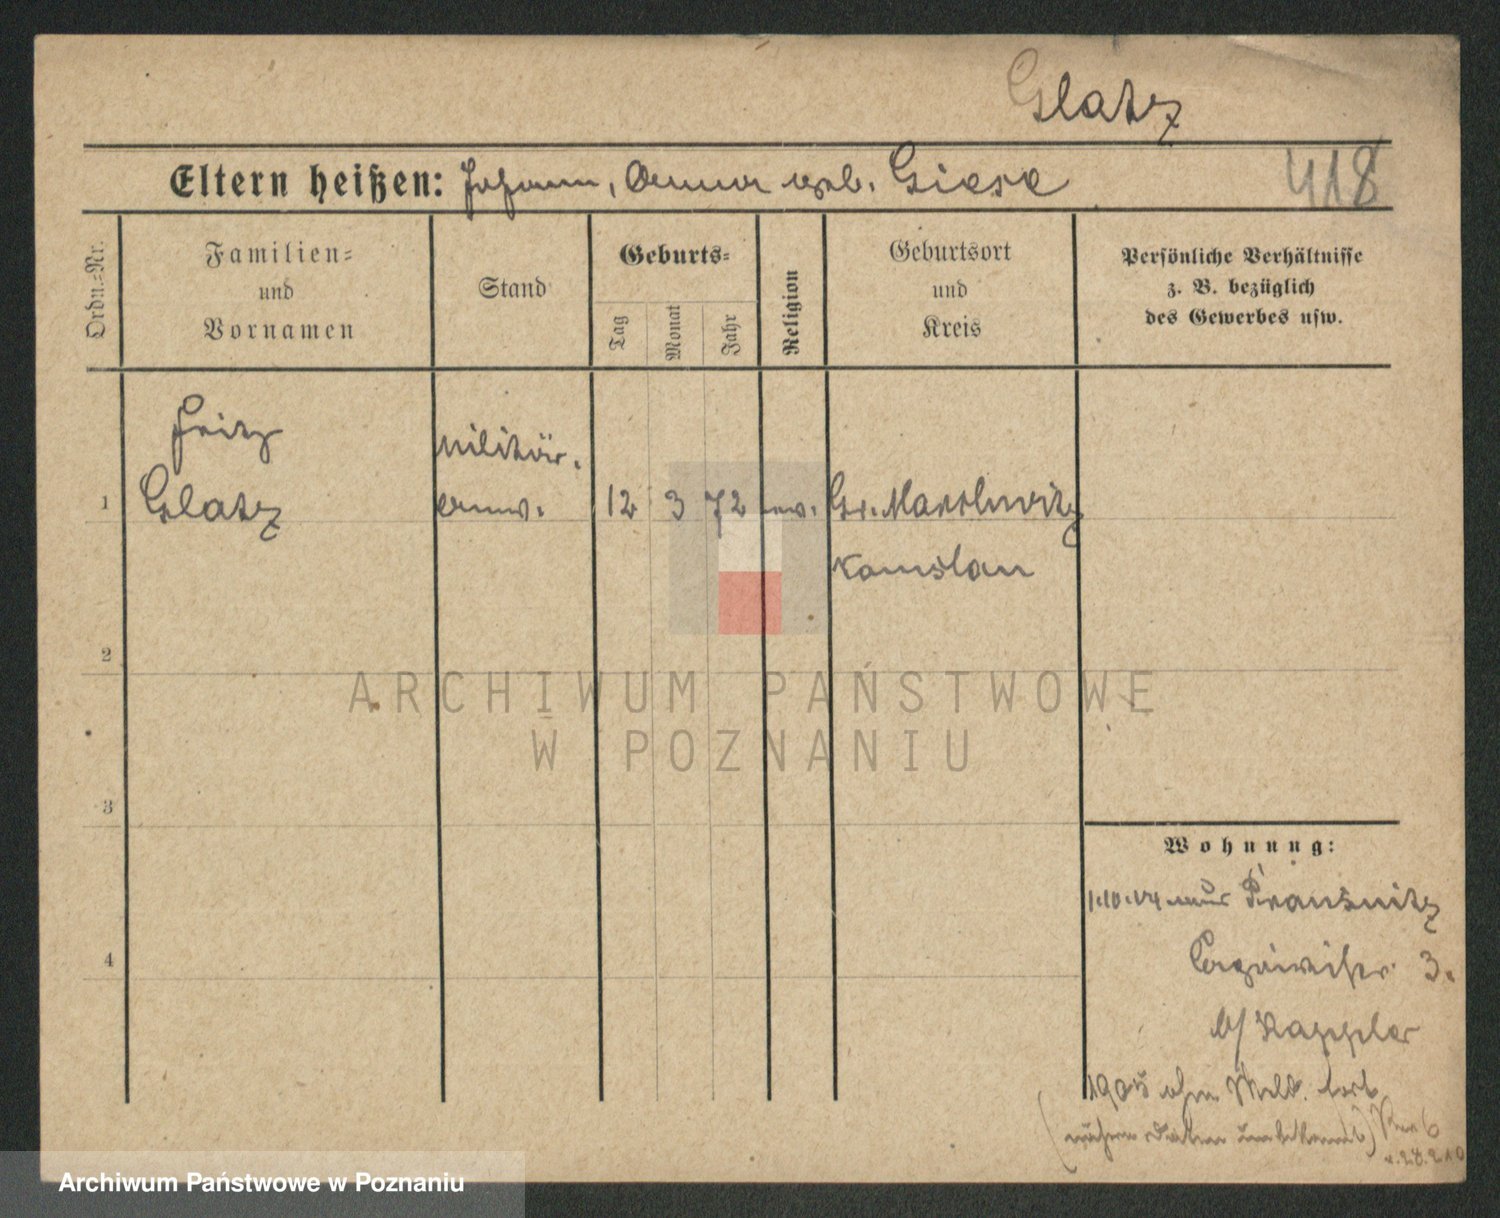 Glatz
Eltern heißen: Johann, Anna geb. Giese
418
Ordn.=Nr.
Familien=
und
Vornamen
Stand
Geburts=
Tag
Monat
Jahr
Religion
Geburtsort
und
Kreis
Persönliche Verhältnisse
z. B. bezüglich
des Gewerbes usw.
Fritz
Militär.
1
Glatz
anw.
12
3
72
ev.
Gr. Marchwitz
Namslau
2
ARCHIWUM PAŃSTWOWE
W POZNANIU
3
Wohnung:
1.10.04 aus Prausnitz
3.
4
b/ Kappler
1905 ohne Meld. fort
(nähere Daten unbekannt)
Archiwum Państwowe w Poznaniu